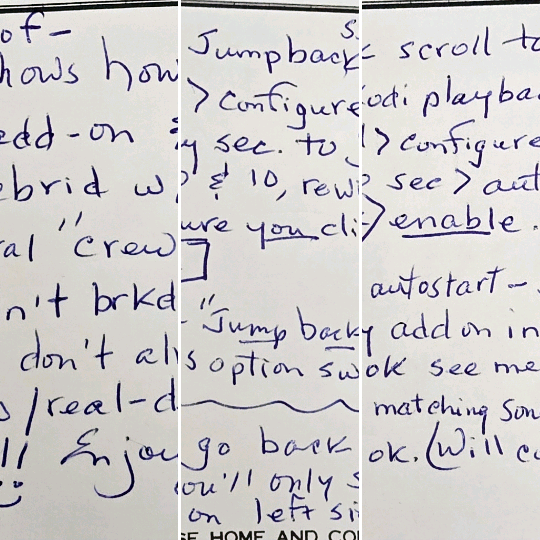 of-
hows how
add-on
ebrid w
al "crew
n't brkd
don't als
s/real-d
!! Enjoy
Jumpback
> configure
y sec. to
& 10, rew
ure you cli
"Jump back
s option sw
go back
ou'll only s
on left si
SE HOME AND CO
scroll to
odi playba
> configure
sec > aut
> enable.
autostart -
y add on in
ok see me
matching son
ok. (Will c